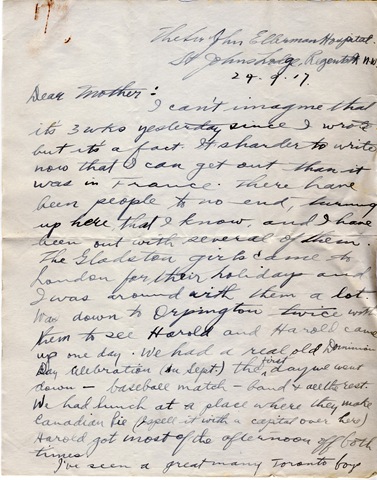 The Sir John Ellerman Hospital.
St Johns Lodge, Regents Pk N.W.
29.9.17.
Dear Mother:
I can't imagine that
it's 3 wks yesterday since I wrote
but it's a fact. It's harder to write
now that I can get out than it
was in France. There have
been people to no end, turning
up here, that I know, and I have
been out with several of them.
The Gladston girls came to
London for their holidays and
I was around with them a lot.
Was down to Orpington twice with
them to see Harold and Harold came
up one day. We had a real old Dominion
Day Celebration (in Sept) the first day we went
down – baseball match – band & all the rest.
We had lunch at a place where they make
Canadian Pie (spell it with a capital over here)
Harold got most of the afternoon off both
times.
I've seen a great many Toronto boys